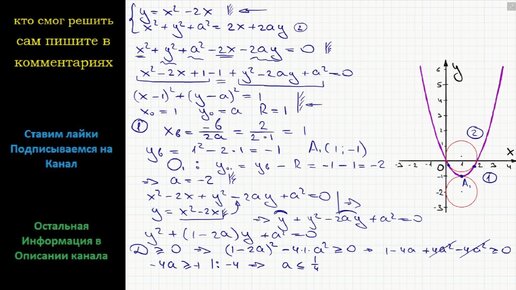 кто смог решить
сам пишите в
комментариях
Ставим лайки
Подписываемся на
Канал
Остальная
Информация в
Описании канала
{ y = x² - 2x
x² + y² + a² = 2x + 2ay ②
x² + y² + a² - 2x - 2ay = 0
x² - 2x + 1 - 1 + y² - 2ay + a² = 0
(x-1)² + (y-a)² = 1
x₀ = 1 y₀ = a R = 1
① xв = -б/2a = 2/2·1 = 1
yв = 1² - 2·1 = -1 A₁(1; -1)
O₁: y₀₁ = yв - R = -1 - 1 = -2
⇒ a = -2
x² - 2x + y² - 2ay + a² = 0
y = x² - 2x ⇒ y + y² - 2ay + a² = 0
y² + (1-2a)y + a² = 0
D ≥ 0 ⇒ (1-2a)² - 4·1·a² ≥ 0 ⇒ 1 - 4a + 4a² - 4a² ≥ 0
-4a ≥ -1 |: -4 ⇒ a ≤ 1/4
y
x
6
5
4
3
2
1
-1
-2
-3
-4 -3 -2 -1 0 1 2 3 4
②
①
A₁